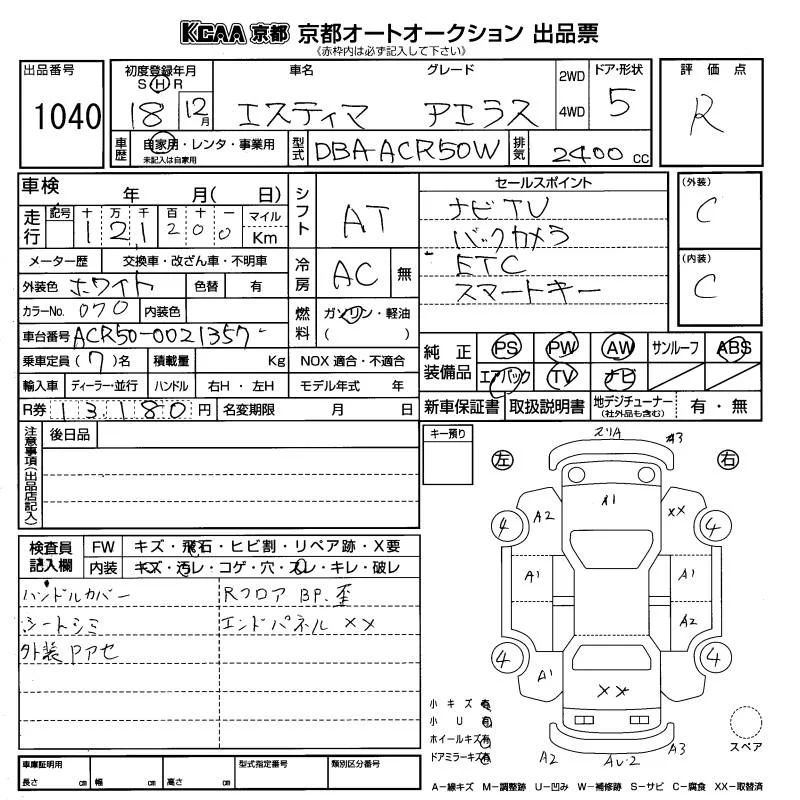 KCAA 京都 京都オートオークション 出品票
《赤枠内は必ず記入して下さい》
出品番号
1040
初度登録年月
S H R
18 12月
車名
エスティマ
グレード
アエラス
2WD
4WD
ドア・形状
5
評価点
R
車歴
自家用・レンタ・事業用
未記入は自家用
型式
DBA-ACR50W
排気
2400 CC
車検 年 月( 日)
走行
記号 十 万 千 百 十 一 マイル
1 2 1 2 0 0 Km
メーター歴 交換車・改ざん車・不明車
外装色 ホワイト 色替 有
カラーNo. 070 内装色
車台番号 ACR50-0021357
乗車定員 (7)名 積載量 Kg
輸入車 ディーラー・並行 ハンドル 右H・左H
R券 13180円 名変期限 月 日
シフト AT
冷房 AC 無
燃料 ガソリン・軽油
( )
NOX 適合・不適合
モデル年式 年
セールスポイント
ナビTV
バックカメラ
ETC
スマートキー
(外装)
C
(内装)
C
純正装備品
PS PW AW サンルーフ ABS
エアバック TV ナビ
新車保証書 取扱説明書 地デジチューナー(社外品も含む) 有・無
注意事項(出品店記入)
後日品
キー預り
検査員記入欄
FW キズ・飛石・ヒビ割・リペア跡・X要
内装 キズ・汚レ・コゲ・穴・ズレ・キレ・破レ
ハンドルカバー
シートシミ
外装Pアセ
Rフロア BP.歪
エンドパネル XX
左
右
スリA
A3
A1
A2
XX
4
4
A1
A1
A2
4
4
A1
XX
A2
Av.2
A3
小キズ有
小U有
ホイールキズ有
ドアミラーキズ有
スペア
A−線キズ M−調整跡 U−凹み W−補修跡 S−サビ C−腐食 XX−取替済
車庫証明用
長さ cm 幅 cm 高さ cm
型式指定番号
類別区分番号